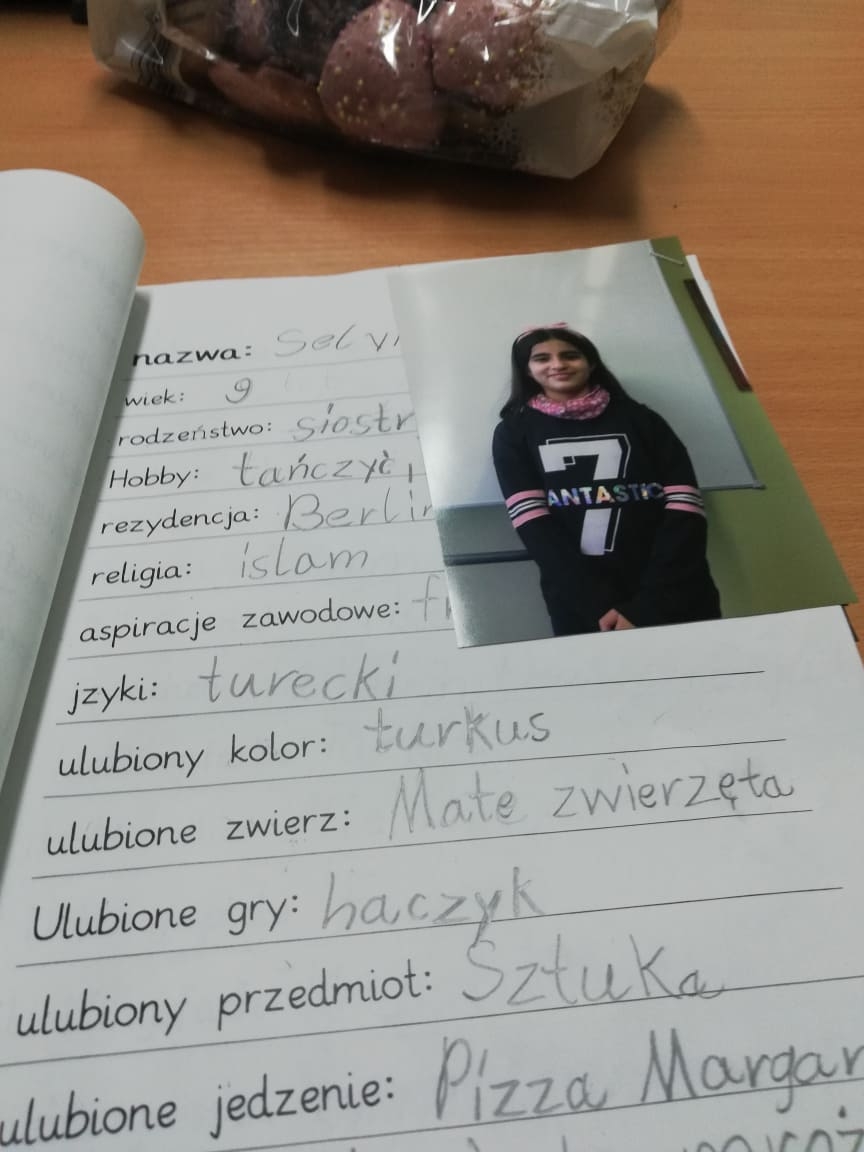 nazwa: Selvi
wiek: 9
rodzeństwo: siostr
Hobby: tańczyć,
rezydencja: Berlin
religia: islam
aspiracje zawodowe: fr
7
ANTASTIC
jzyki: turecki
ulubiony kolor: turkus
ulubione zwierz: Małe zwierzęta
Ulubione gry: haczyk
ulubiony przedmiot: Sztuka
ulubione jedzenie: Pizza Margar